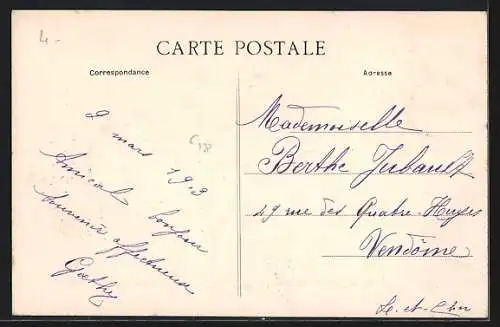 4-
CARTE POSTALE
Correspondance
Adresse
9 mars 1913
Amical bonjour
Souvenir affectueux
C18
Mademoiselle
Berthe Jubault
49 rue des Quatre-Huyes
Vendôme
L.-et-Cher